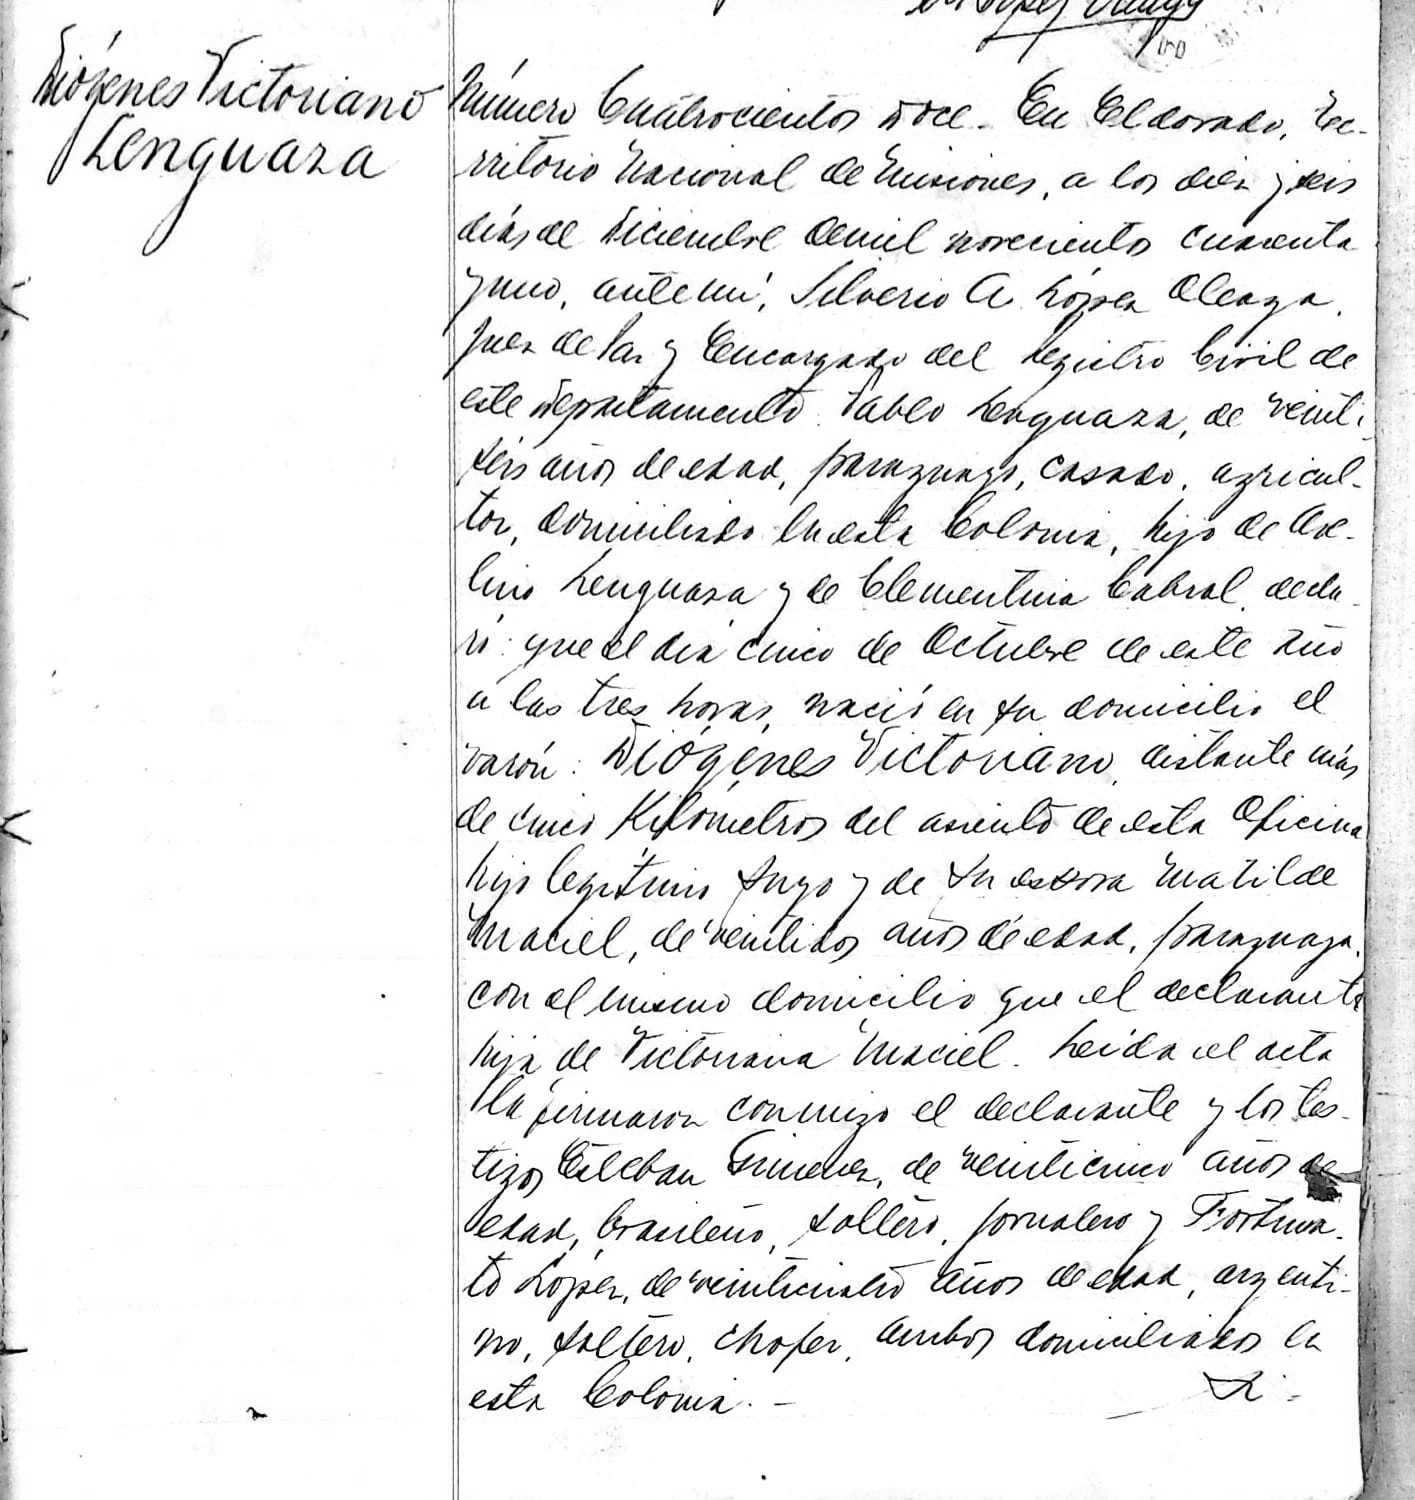 Diógenes Victoriano
Lenguaza
Número Cuatrocientos doce. En Eldorado, Te-
rritorio Nacional de Misiones, a los diez y seis
días de Diciembre de mil novecientos cuarenta
y uno, ante mí, Silverio A. López Aleaga,
Juez de Paz y Encargado del Registro Civil de
este Departamento. Pablo Lenguaza, de veinti-
seis años de edad, paraguayo, casado, agricul-
tor, domiciliado en esta Colonia, hijo de Ade-
lino Lenguaza y de Clementina Cabral, decla-
ró: que el día cinco de Octubre de este año
a las tres horas, nació en su domicilio el
varón: Diógenes Victoriano, distante más
de cinco Kilómetros del asiento de esta Oficina
hijo legítimo suyo y de su esposa Matilde
Maciel, de veintidos años de edad, paraguaya,
con el mismo domicilio que el declarante
hija de Victoriana Maciel. Leída el acta
la firmaron conmigo el declarante y los tes-
tigos Esteban Gimenez, de veinticinco años de
edad, brasileño, soltero, jornalero y Fortuna-
to López, de veinticuatro años de edad, argenti-
no, soltero, chofer, ambos domiciliados en
esta Colonia. -